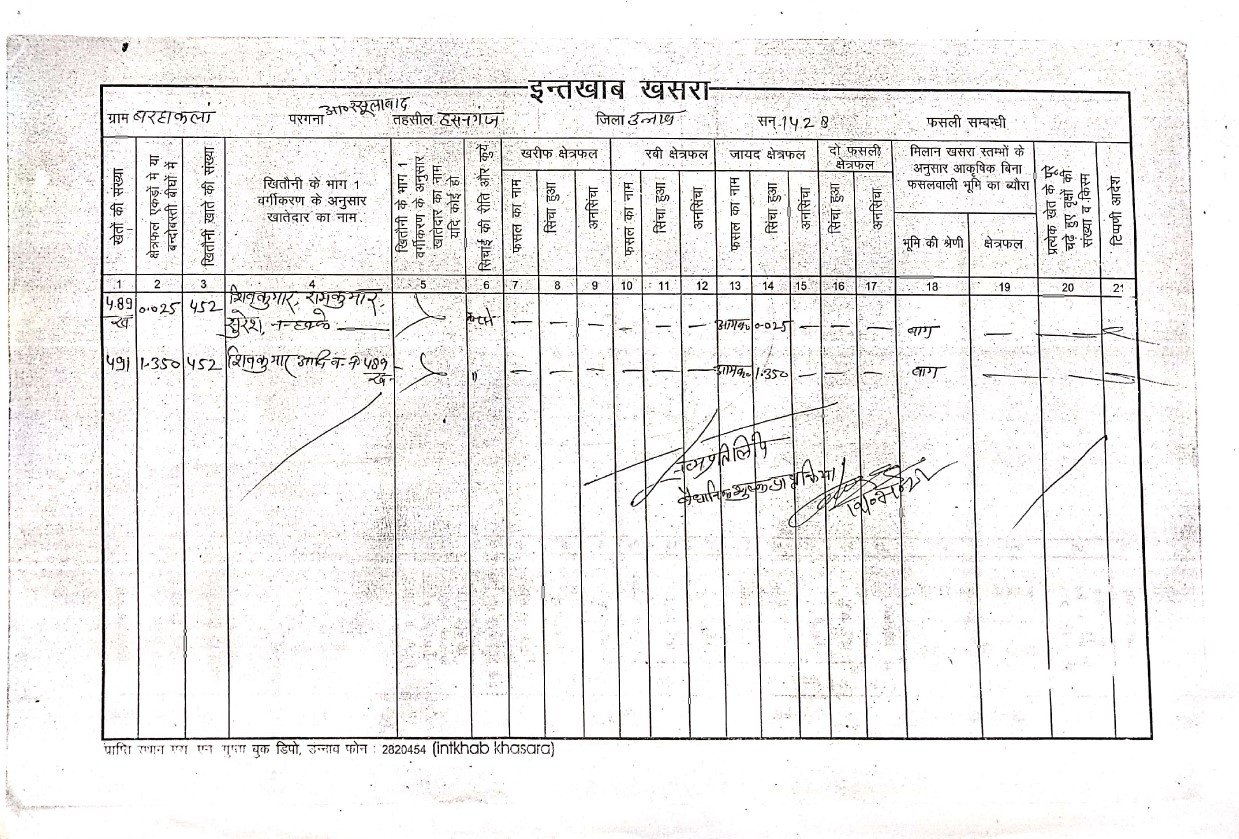 इन्तखाब खसरा
ग्राम बरहाकलां परगना आ० रसूलाबाद तहसील हसनगंज जिला उन्नाव सन् 1428 फसली सम्बन्धी
खेतों की संख्या
क्षेत्रफल एकड़ों में या बन्दोबस्ती बीघों में
खितौनी खाते की संख्या
खितौनी के भाग 1
वर्गीकरण के अनुसार
खातेदार का नाम
खितौनी के भाग 1
वर्गीकरण के अनुसार
खातेदार का नाम
यदि कोई हो
सिंचाई की रीति और
खरीफ क्षेत्रफल
फसल का नाम
सिंचा हुआ
अनसिंचा
रबी क्षेत्रफल
फसल का नाम
सिंचा हुआ
अनसिंचा
जायद क्षेत्रफल
फसल का नाम
सिंचा हुआ
अनसिंचा
दो फसली
क्षेत्रफल
सिंचा हुआ
अनसिंचा
मिलान खसरा स्तम्भों के
अनुसार आकृषिक बिना
फसलवाली भूमि का ब्यौरा
भूमि की श्रेणी
क्षेत्रफल
प्रत्येक खेत के
चढ़े हुए वृक्षों की
संख्या व किस्म
टिप्पणी आदेश
1 2 3 4 5 6 7 8 9 10 11 12 13 14 15 16 17 18 19 20 21
489 0.025 452 शिवकुमार, रामकुमार,
ख सुरेश, — — — — — — 0.025 — — — बाग — —
491 1.350 452 शिवकुमार आदि 489 " — — — — — — 1.350 — — — बाग — —
ख
सत्यप्रतिलिपि
प्राप्ति स्थान एस एन गुप्ता बुक डिपो, उन्नाव फोन : 2820454 (intkhab khasara)